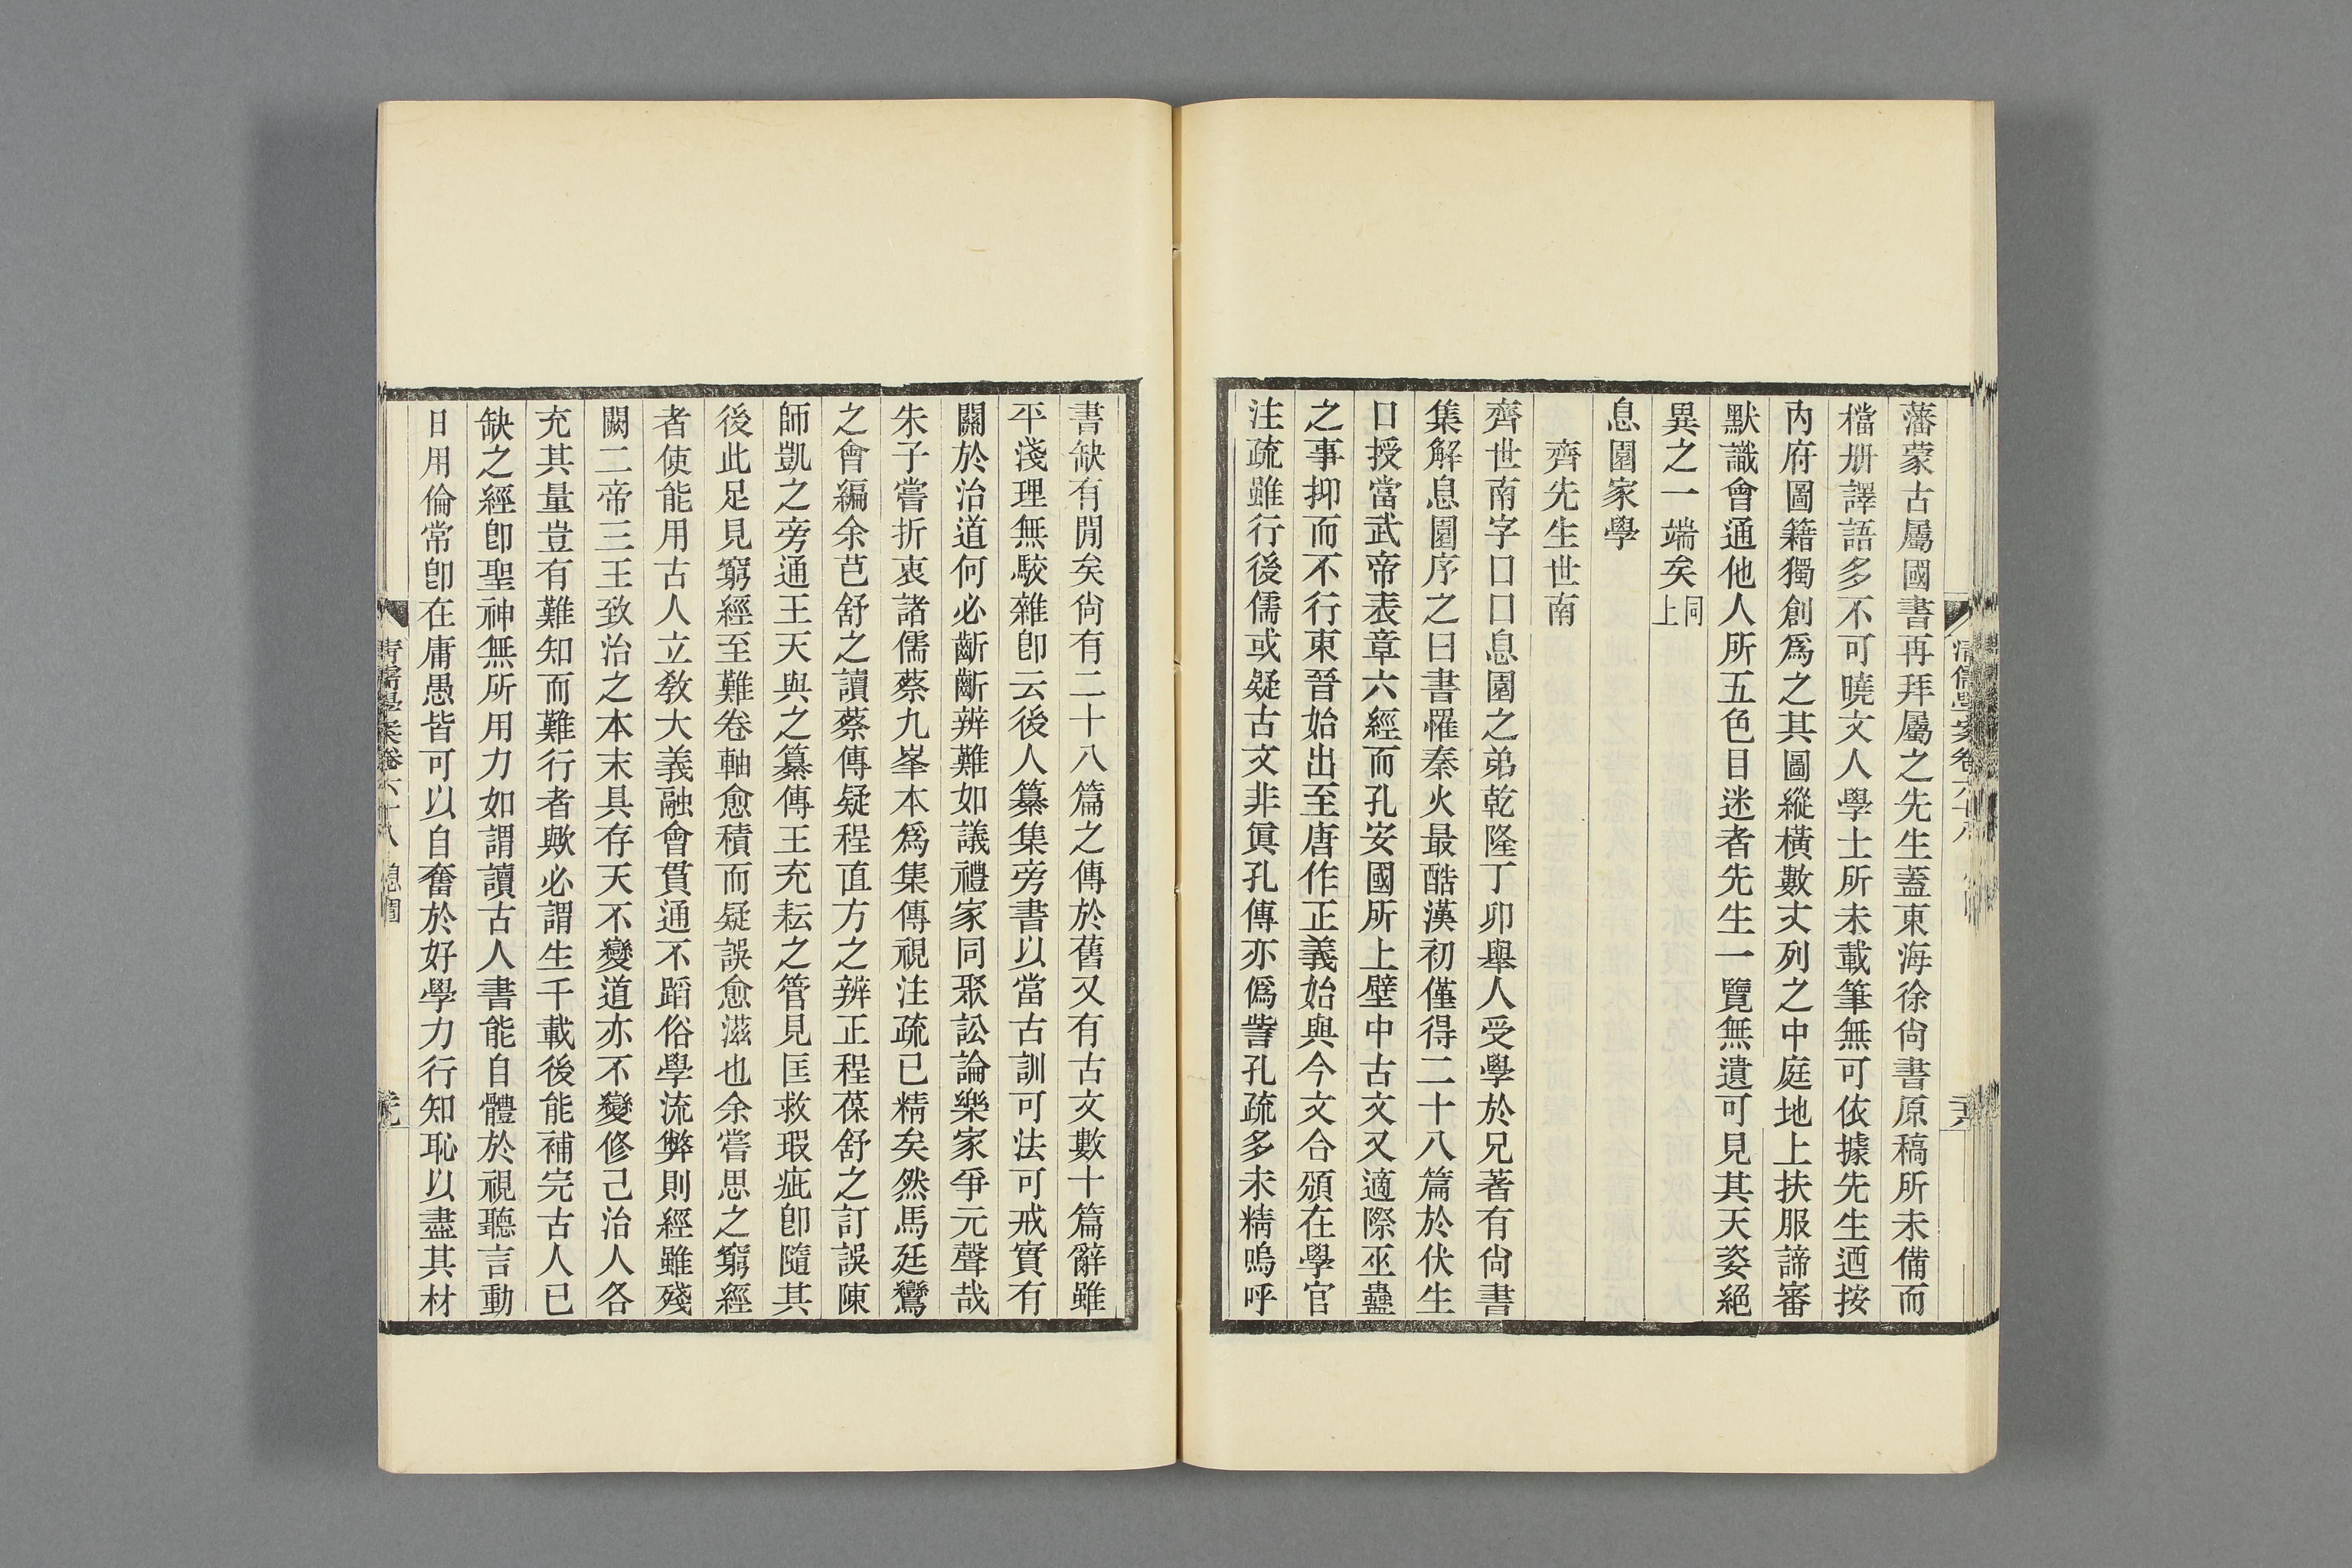 藩蒙古屬國書再拜屬之先生蓋東海徐尙書原稿所未備而
檔册譯語多不可曉文人學士所未載筆無可依據先生迺按
內府圖籍獨創爲之其圖縱橫數丈列之中庭地上扶服諦審
默識會通他人所五色目迷者先生一覽無遺可見其天姿絕
異之一端矣同上
息園家學
齊先生世南
齊世南字口口息園之弟乾隆丁卯舉人受學於兄著有尙書
集解息園序之曰書罹秦火最酷漢初僅得二十八篇於伏生
口授當武帝表章六經而孔安國所上壁中古文又適際巫蠱
之事抑而不行東晉始出至唐作正義始與今文合頒在學官
注疏雖行後儒或疑古文非眞孔傳亦僞訾孔疏多未精嗚呼
書缺有閒矣尙有二十八篇之傳於舊又有古文數十篇辭雖
平淺理無駮雜卽云後人纂集旁書以當古訓可法可戒實有
關於治道何必齗齗辨難如議禮家同聚訟論樂家爭元聲哉
朱子嘗折衷諸儒蔡九峯本爲集傳視注疏已精矣然馬廷鸞
之會編余芑舒之讀蔡傳疑程直方之辨正程葆舒之訂誤陳
師凱之旁通王天與之纂傳王充耘之管見匡救瑕疵卽隨其
後此足見窮經至難卷軸愈積而疑誤愈滋也余嘗思之窮經
者使能用古人立敎大義融會貫通不蹈俗學流弊則經雖殘
闕二帝三王致治之本末具存天不變道亦不變修己治人各
充其量豈有難知而難行者歟必謂生千載後能補完古人已
缺之經卽聖神無所用力如謂讀古人書能自體於視聽言動
日用倫常卽在庸愚皆可以自奮於好學力行知恥以盡其材
清儒學案卷六十八 息園